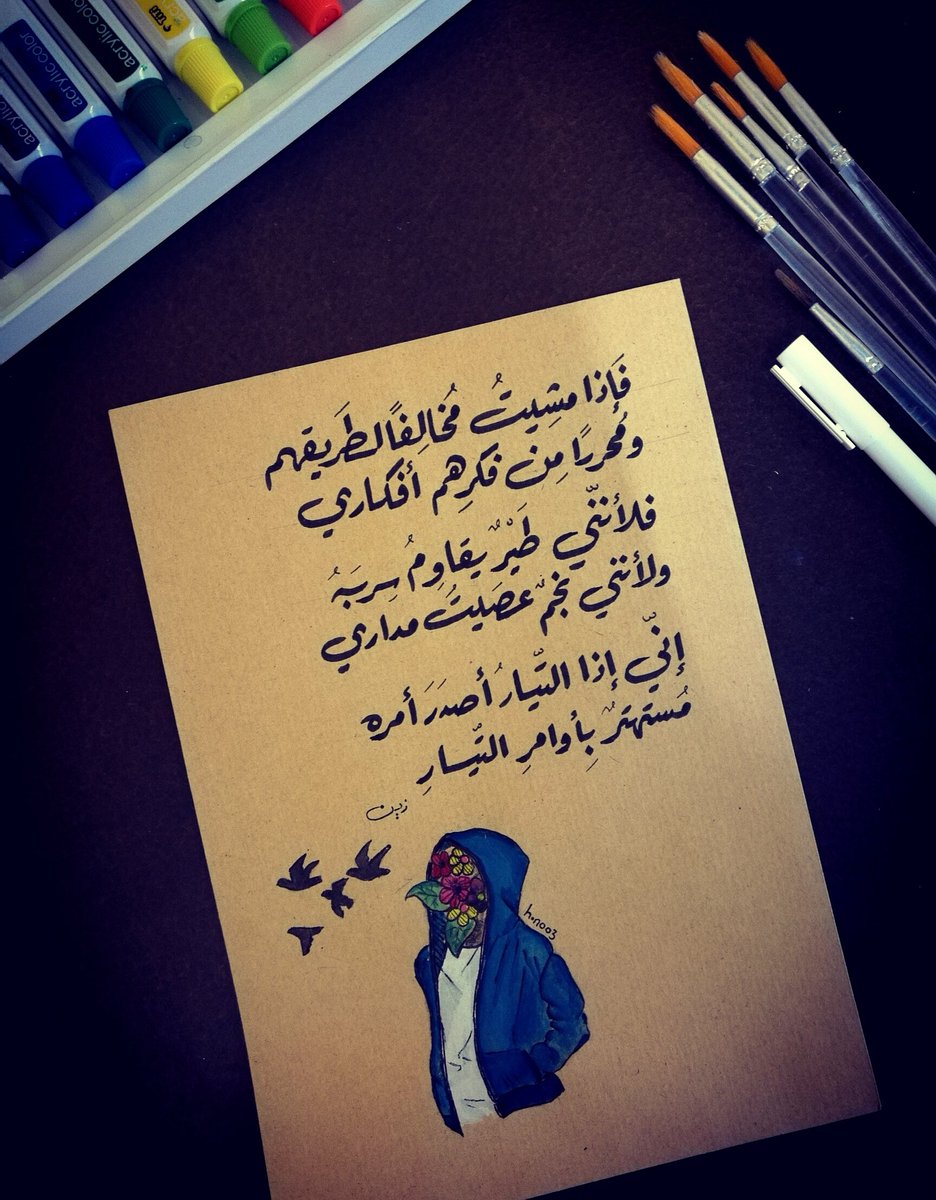 acrylic color
acrylic color
acrylic color
فَإذا مشِيتُ مُخالِفًا لطَريقهم
ومُحررًا مِن فكرِهم أفكاري
فلأنّني طَيْرٌ يقاوِمُ سِربَهُ
ولأنني نجمٌ عصَيتُ مداري
إنّي إذا التّيارُ أصدَرَ أمره
مُستهترٌ بِأوامرِ التّيسارِ
زين
h.noo3